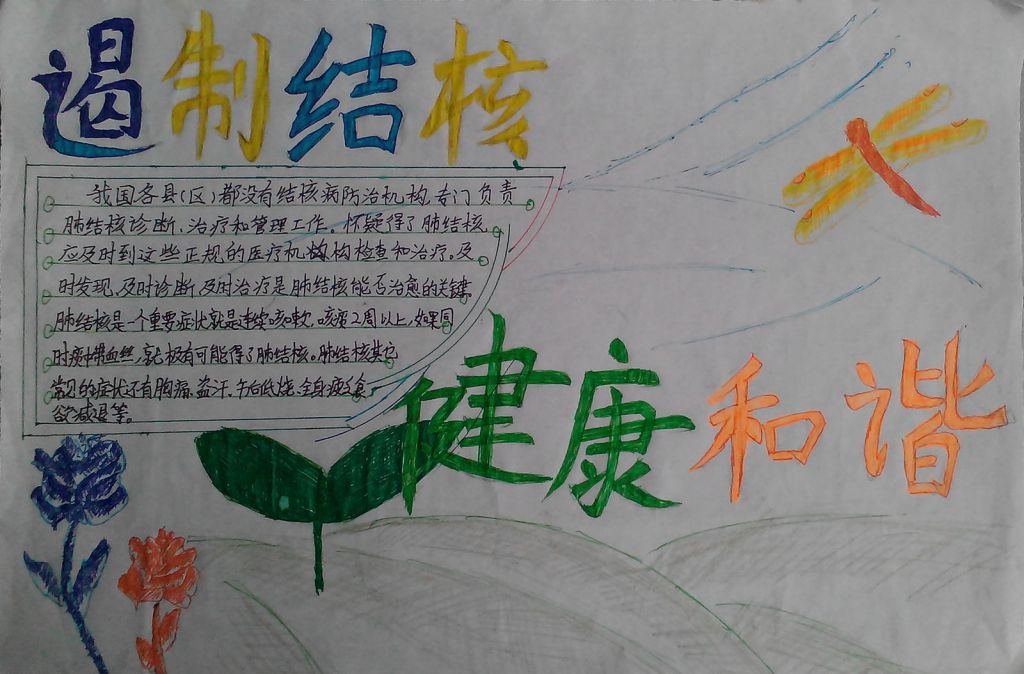 遏制结核
我国各县(区)都没有结核病防治机构,专门负责
肺结核诊断、治疗和管理工作。怀疑得了肺结核,
应及时到这些正规的医疗机构检查和治疗。及
时发现、及时诊断、及时治疗是肺结核能否治愈的关键。
肺结核是一个重要症状就是连续咳嗽、咳痰2周以上,如果同
时痰中带血丝,就极有可能得了肺结核。肺结核其它
常见的症状还有胸痛、盗汗、午后低烧、全身疲乏、食
欲减退等。
健康和谐